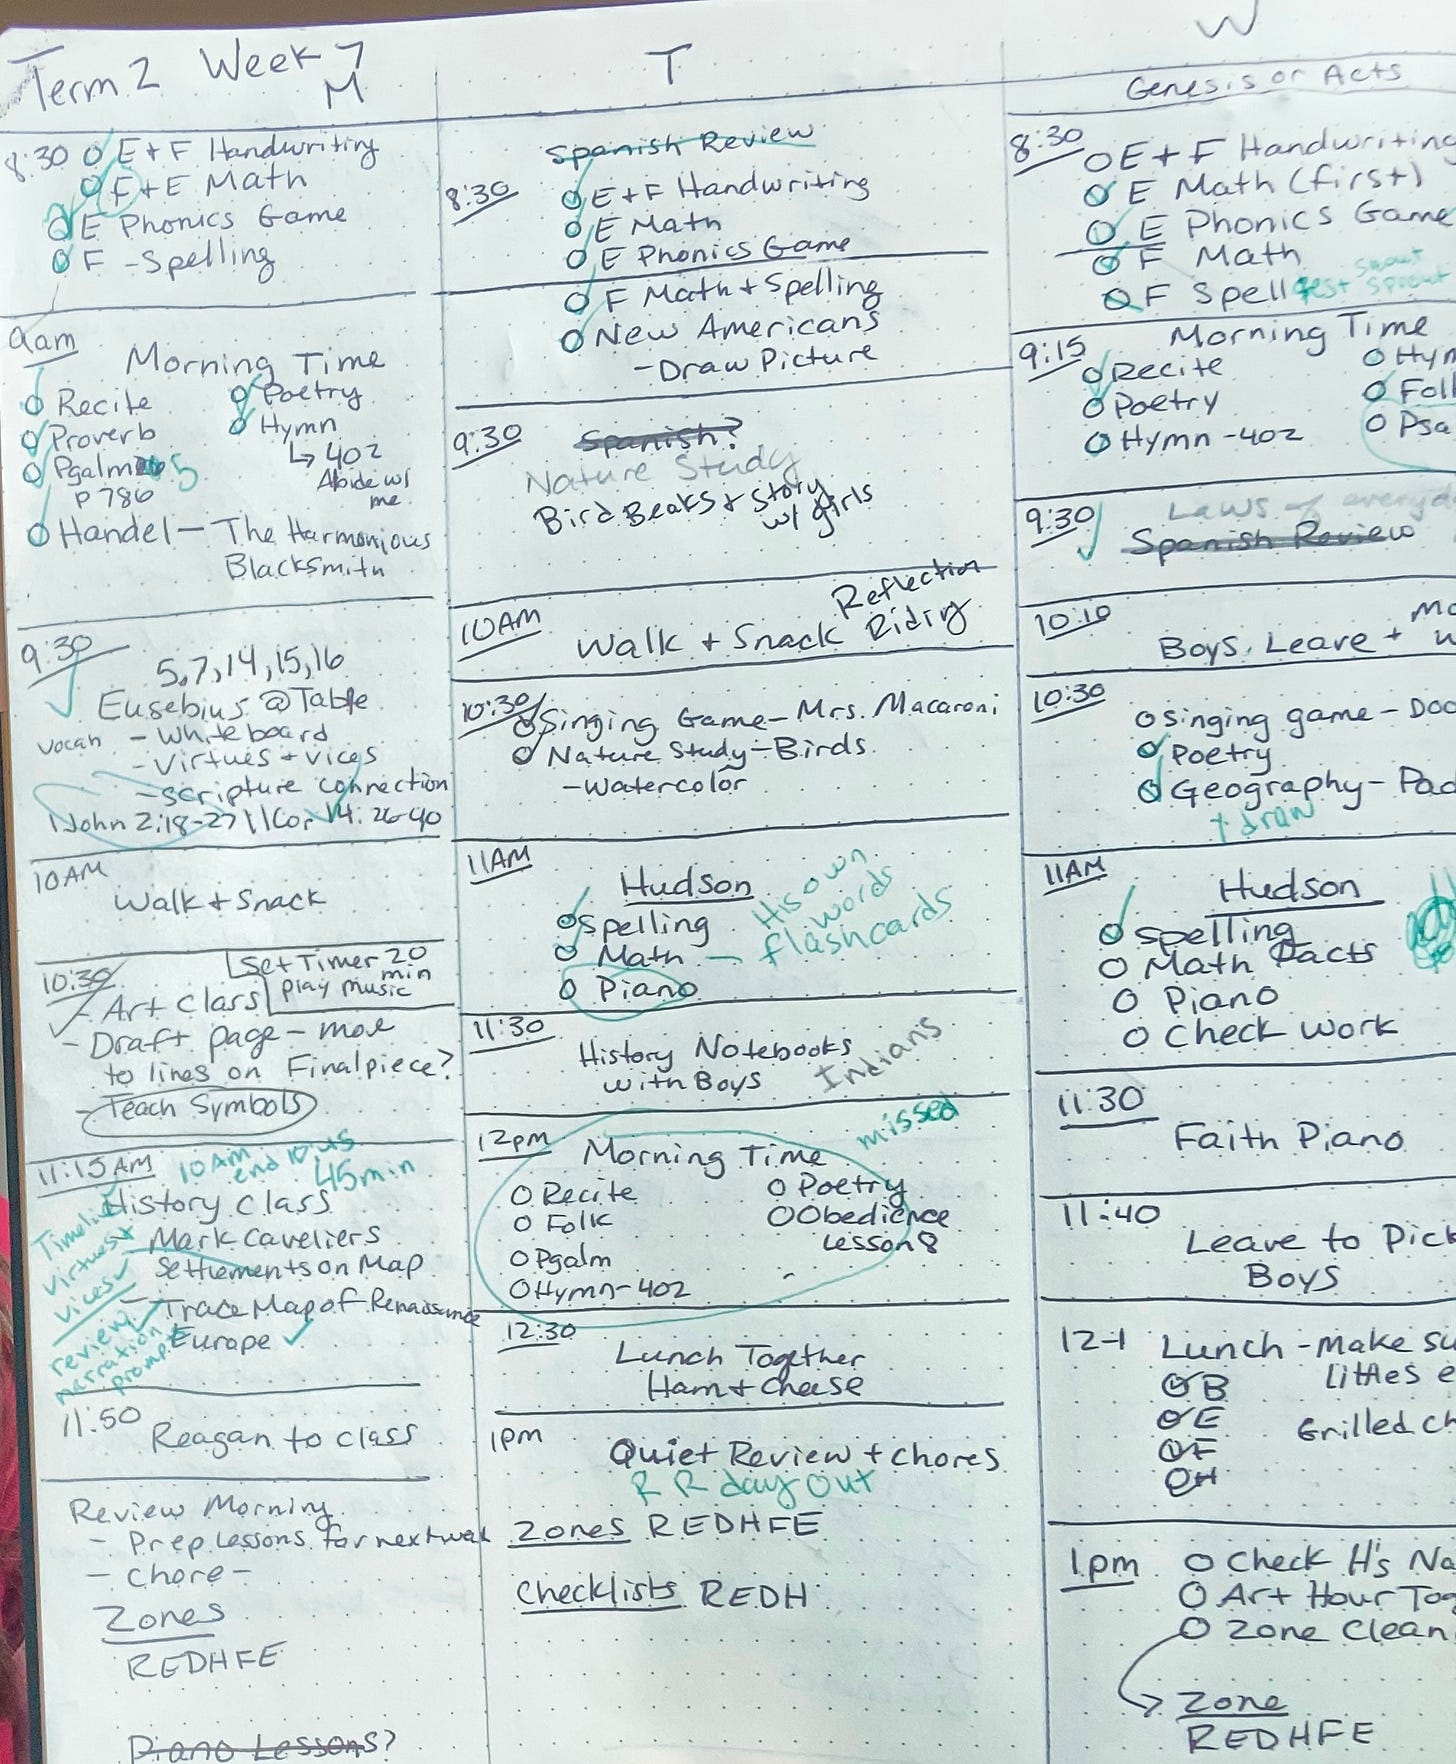 Term 2 Week 7
M
8:30 E + F Handwriting
F + E Math
E Phonics Game
F - Spelling
9am
Morning Time
Recite
Poetry
Proverb
Hymn
Psalm 5
↳ 402
p 786
Abide w/ me
Handel - The Harmonious
Blacksmith
9:30
5, 7, 14, 15, 16
Eusebius @ Table
vocab - Whiteboard
- Virtues + vices
- Scripture connection
1 John 2:18-27 \\ 1 Cor 14: 26-40
10AM
Walk + Snack
10:30
Set Timer 20 min
play music
Art Class
- Draft page - move
to lines on Final piece?
- Teach Symbols
11:15AM
10AM
end 10:45
45 min
History Class
Timeline
virtues +
vices
review
narration
prompt
- Mark Caveliers
Settlements on Map
- Trace Map of Renaissance
Europe
11:50
Reagan to class
Review Morning
- Prep Lessons for next week
- Chore -
Zones
REDHFE
Piano Lessons?
T
Spanish Review
8:30
E + F Handwriting
E Math
E Phonics Game
F Math + Spelling
New Americans
- Draw Picture
9:30
Spanish?
Nature Study
Bird Beaks + Story
w/ girls
10AM
Walk + Snack
Reflection
Riding
10:30
Singing Game - Mrs. Macaroni
Nature Study - Birds
- Watercolor
11AM
Hudson
Spelling
Math -
His own
words
flashcards
Piano
11:30
History Notebooks
with Boys
Indians
12pm
Morning Time
missed
Recite
Poetry
Folk
Obedience
Lesson 8
Psalm
Hymn - 402
12:30
Lunch Together
Ham + Cheese
1pm
Quiet Review + Chores
R R day out
Zones REDHFE
Checklists REDH
W
Genesis or Acts
8:30
E + F Handwriting
E Math (first)
E Phonics Game
F Math
F Spell test
9:15
Morning Time
Recite
Poetry
Hymn - 402
9:30
Laws of
Spanish Review
10:10
Boys, Leave +
10:30
Singing game -
Poetry
Geography -
+ draw
11AM
Hudson
Spelling
Math Facts
Piano
Check work
11:30
Faith Piano
11:40
Leave to Pick
Boys
12-1 Lunch - Make
littles
B
E
F
H
Grilled
1pm
Check H's
Art Hour
Zone Clean
Zone
REDHFE